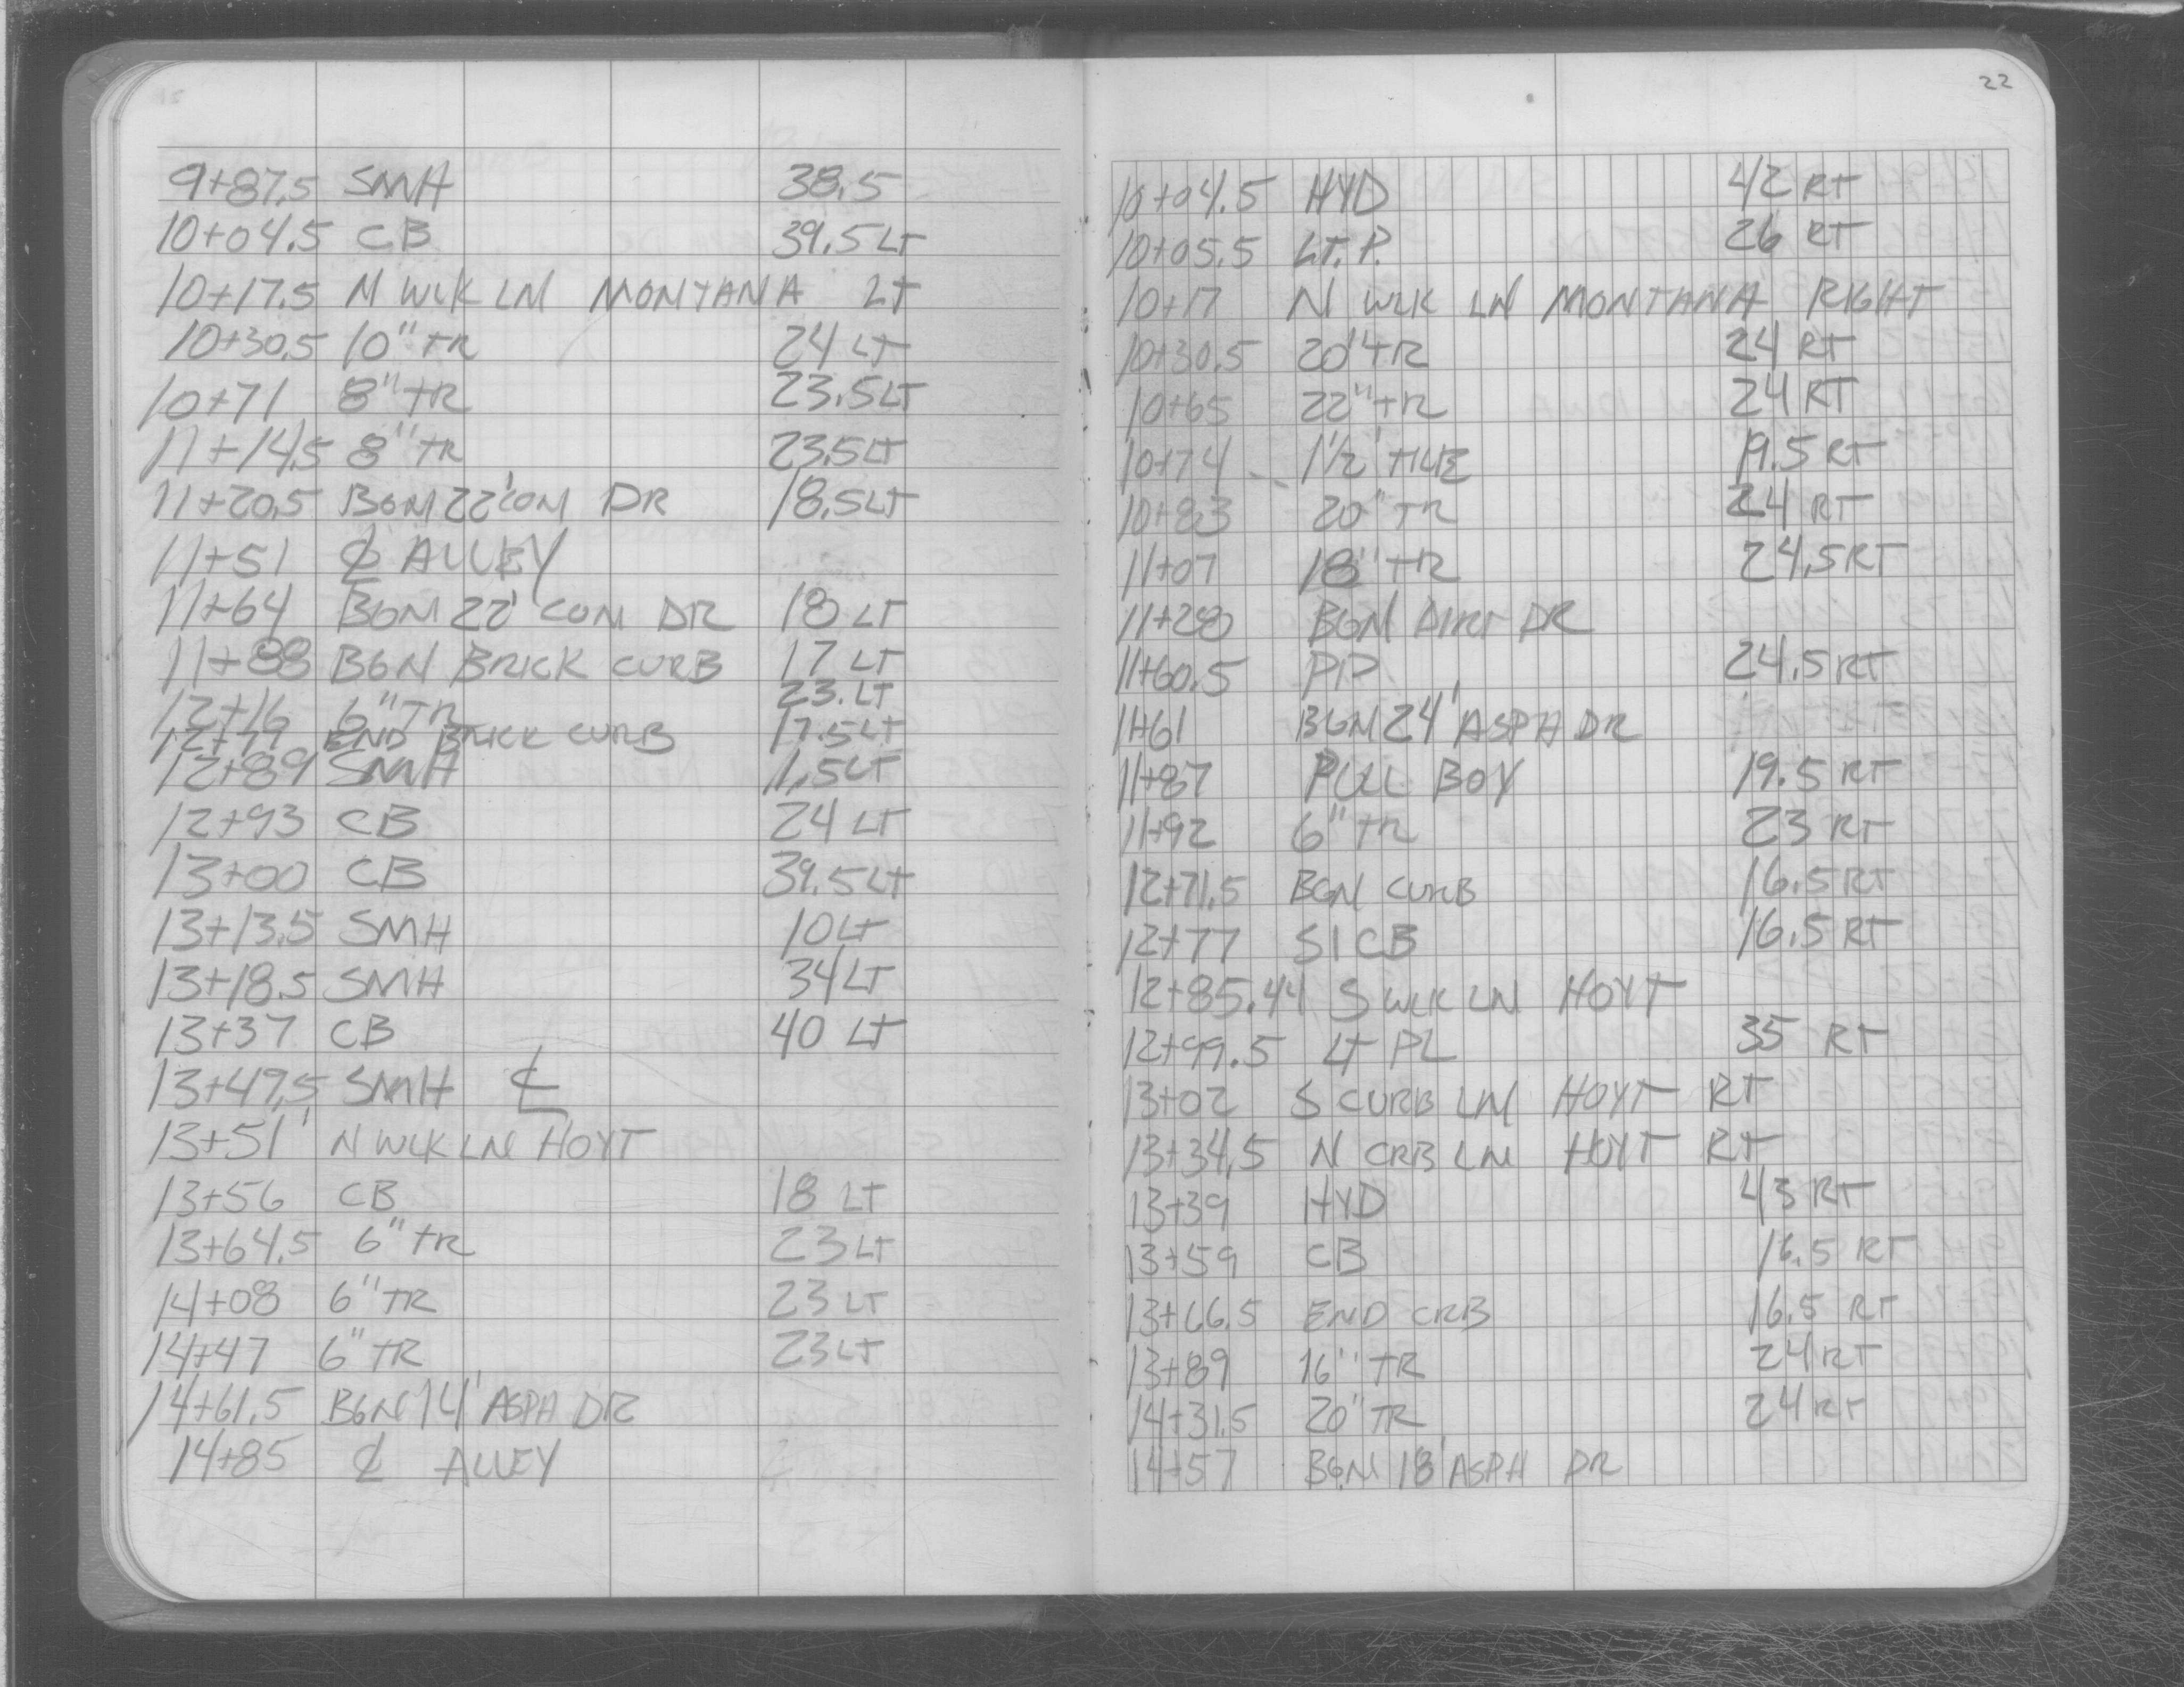 9+87.5 SMH 38.5
10+04.5 CB 39.5 LT
10+17.5 N WLK LN MONTANA LT
10+30.5 10" TR 24 LT
10+71 8" TR 23.5 LT
11+14.5 8" TR 23.5 LT
11+20.5 BGN 22' CON DR 18.5 LT
11+51 ℄ ALLEY
11+64 BGN 22' CON DR 18 LT
11+88 BGN BRICK CURB 17 LT
12+16 6" TR 23. LT
END BRICK CURB 17.5 LT
12+89 SMH 11.5 LT
12+93 CB 24 LT
13+00 CB 39.5 LT
13+13.5 SMH 10 LT
13+18.5 SMH 34 LT
13+37 CB 40 LT
13+47.5 SMH ℄
13+51' N WLK LN HOYT
13+56 CB 18 LT
13+64.5 6" TR 23 LT
14+08 6" TR 23 LT
14+47 6" TR 23 LT
14+61.5 BGN 14' ASPH DR
14+85 ℄ ALLEY
22
10+04.5 HYD 42 RT
10+05.5 LT. P. 26 RT
10+17 N WLK LN MONTANA RIGHT
10+30.5 20" TR 24 RT
10+65 22" TR 24 RT
10+74 1 1/2' 19.5 RT
10+83 20" TR 24 RT
11+07 18" TR 24.5 RT
11+28 BGN DIRT DR
11+60.5 PP 24.5 RT
11+61 BGN 24' ASPH DR
11+87 PULL BOX 19.5 RT
11+92 6" TR 23 RT
12+71.5 BGN CURB 16.5 RT
12+77 S1 CB 16.5 RT
12+85.44 S WLK LN HOYT
12+99.5 LT PL 35 RT
13+02 S CURB LN HOYT RT
13+34.5 N CRB LN HOYT RT
13+39 HYD 43 RT
13+59 CB 16.5 RT
13+66.5 END CRB 16.5 RT
13+89 16" TR 24 RT
14+31.5 20" TR 24 RT
14+57 BGN 18' ASPH DR